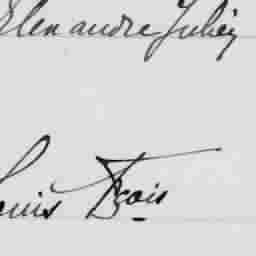 Alexandre Julien
Louis Fçois